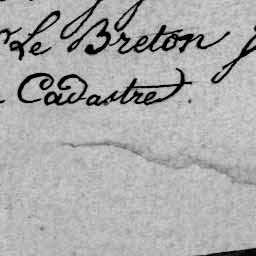 Le Breton
Cadastre